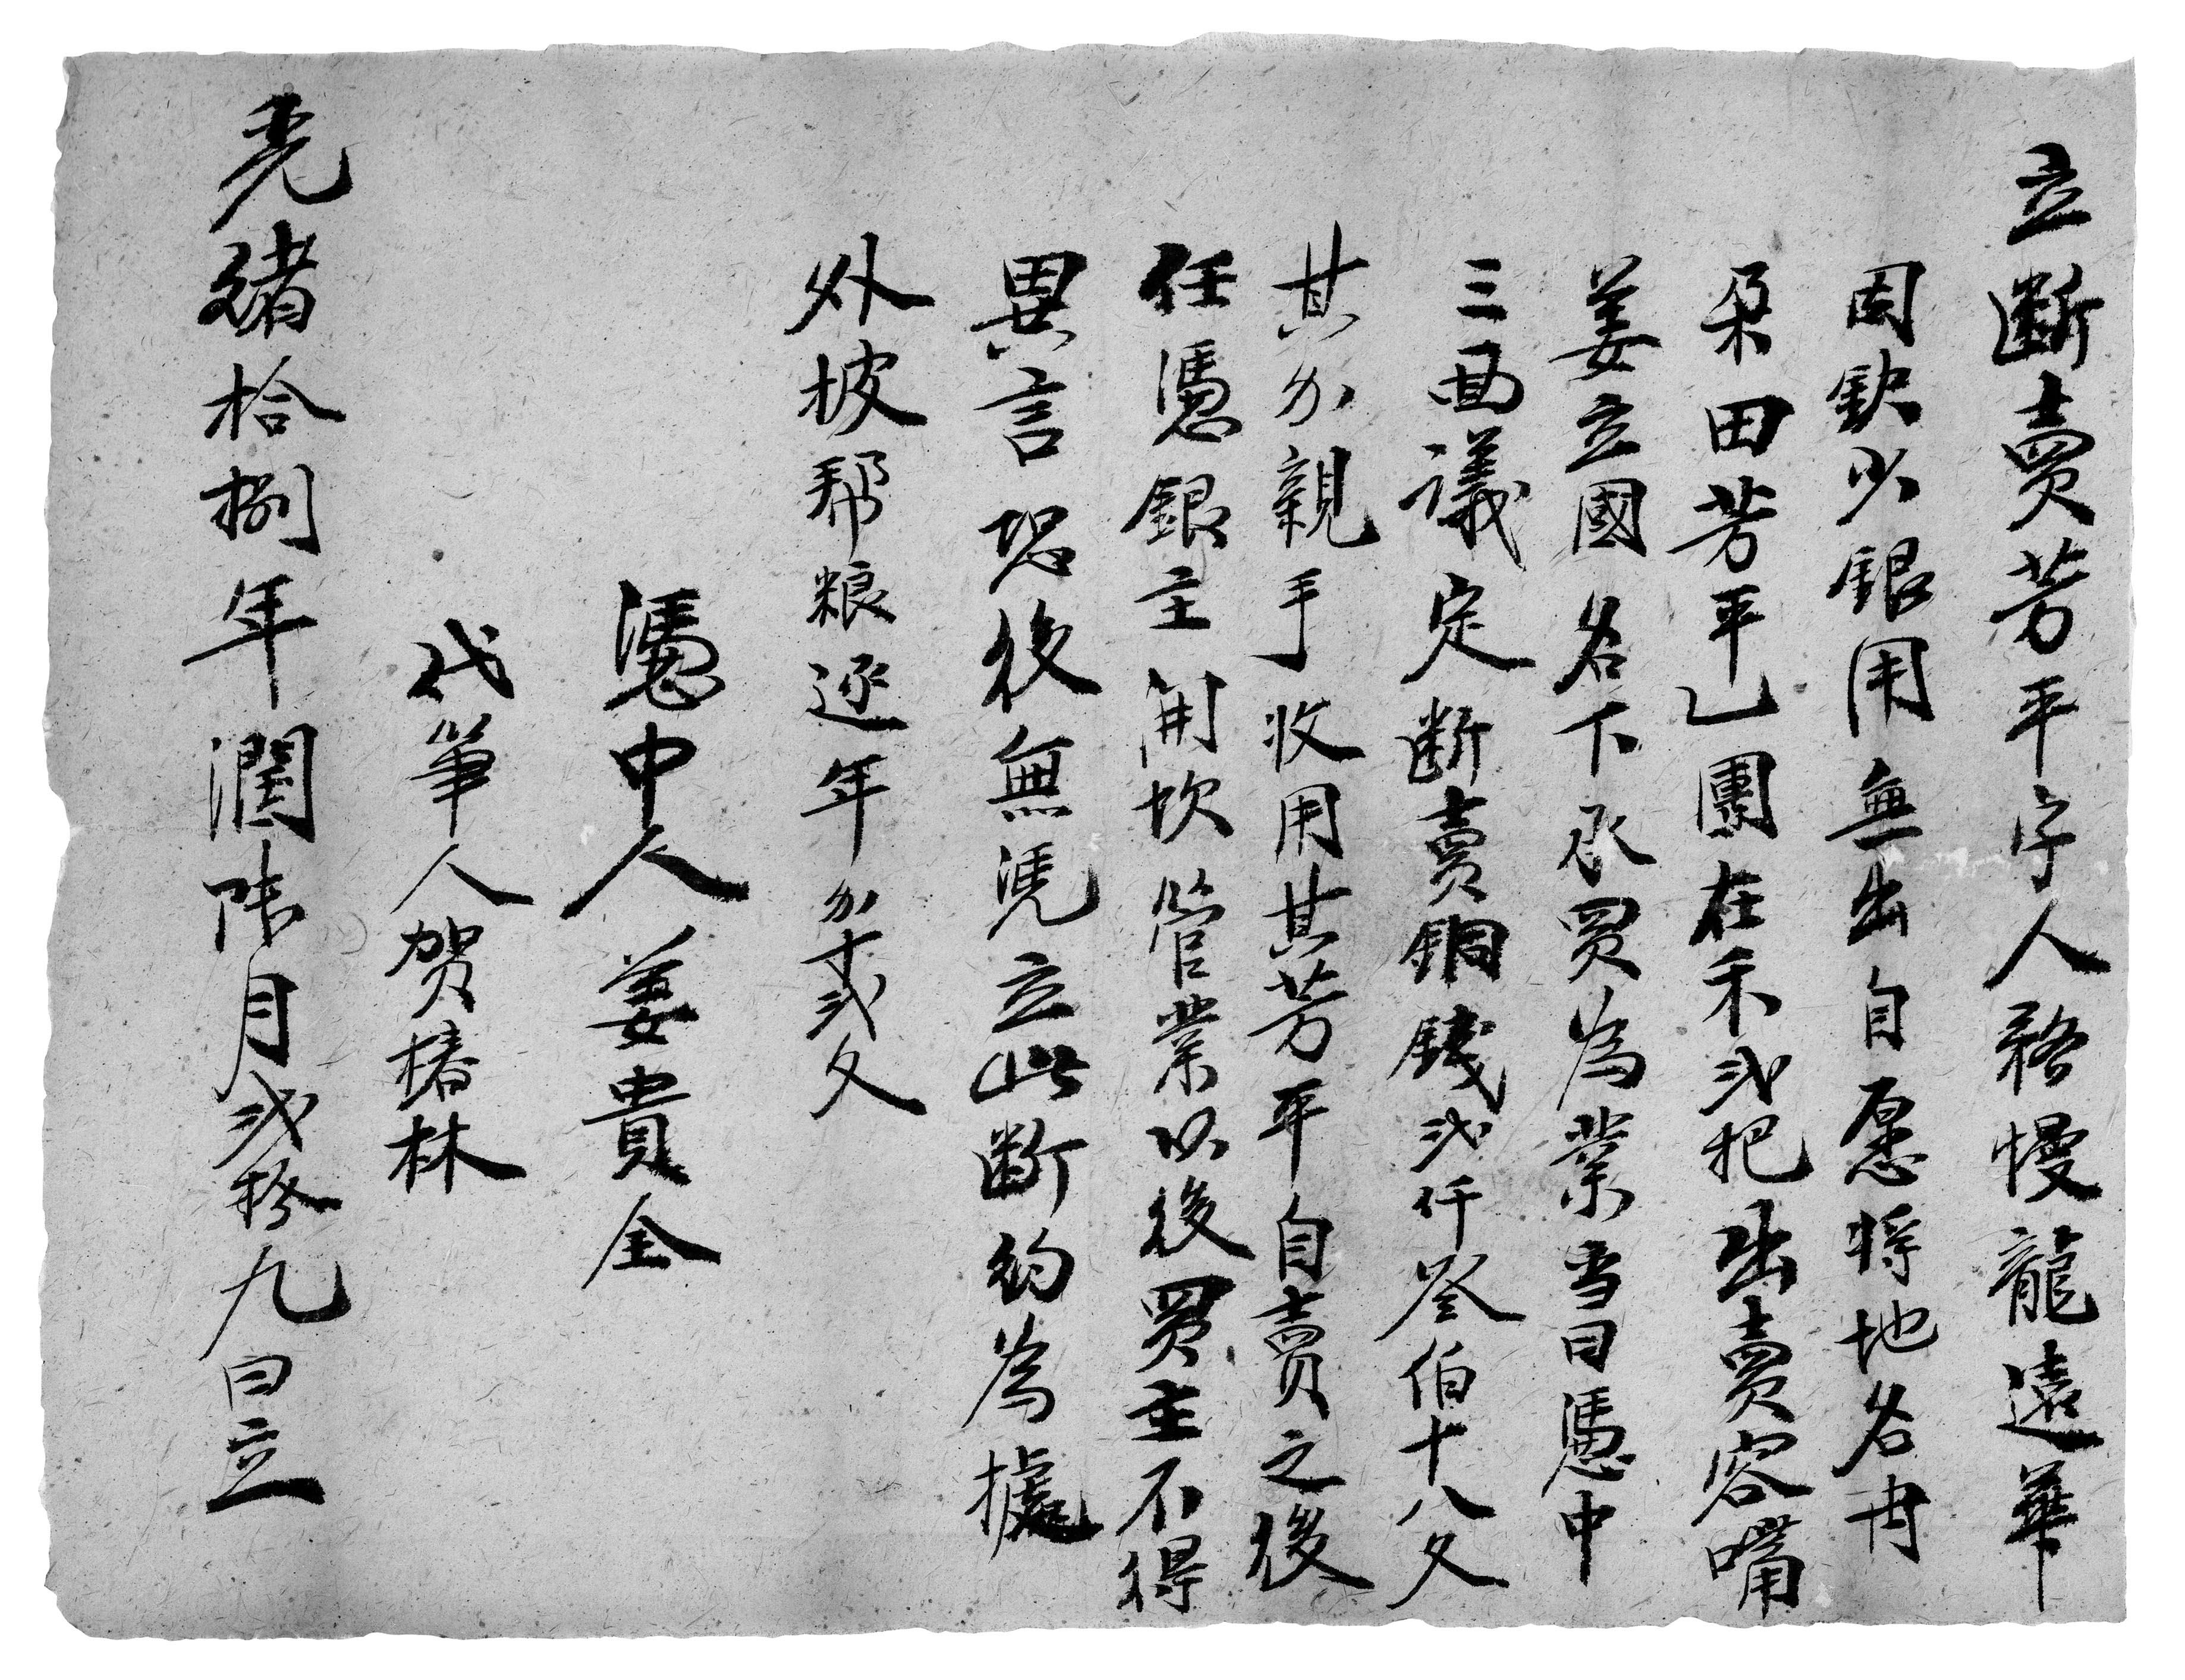 立断賣芳平字人路慢龍遠華
因缺少銀用無出自愿将地名冉
朶田芳平乙團在禾弍把出賣容嘴
姜立國名下承買為業当日憑中
三面議定断賣銅錢弍仟叄伯十八文
其分親手收用其芳平自賣之後
任憑銀主開坎管業以後買主不得
異言恐後無凭立此断約為據
外披帮粮逐年分弍文
憑中人姜貴全
代筆人贺椿林
光緒拾捌年潤陆月弍拾九日立